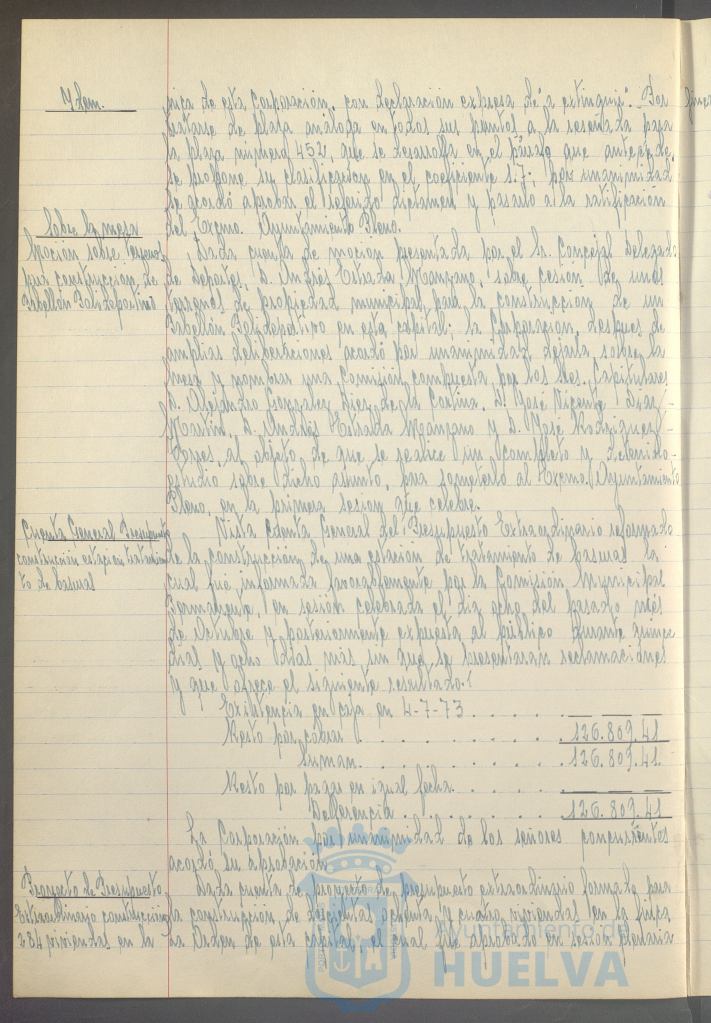 Idem.
nica de esta Corporación, con declaración expresa de "a extinguir". Por
tratarse de plaza análoga en todos sus puntos a la reseñada para
la plaza número 452, que se desarrolla en el párrafo que antecede,
se propone su clasificación en el coeficiente 1.7; por unanimidad
se acordó aprobar el referido dictamen y pasarlo a la ratificación
del Excmo. Ayuntamiento Pleno.
Sobre la mesa
Moción sobre terrenos
para construcción de
Pabellón Polideportivo
Dada cuenta de moción presentada por el Sr. Concejal Delegado
de Deportes, D. Andrés Estrada Manzano, sobre cesión de unos
terrenos de propiedad municipal para la construcción de un
Pabellón Polideportivo en esta capital; la Corporación, después de
amplias deliberaciones acordó por unanimidad dejarla sobre la
mesa y nombrar una Comisión compuesta por los Sres. Capitulares
D. Alejandro González Diez de la Cortina, D. José Vicente Díaz
Martín, D. Andrés Estrada Manzano y D. José Rodríguez
al objeto de que se realice un completo y detenido
estudio sobre dicho asunto, para someterlo al Excmo. Ayuntamiento
Pleno, en la primera sesión que celebre.
Cuenta General Presupuesto
construcción estación tratamien
to de basuras
Vista Cuenta General del Presupuesto Extraordinario reformado
de la construcción de una estación de tratamiento de basuras la
cual fué informada favorablemente por la Comisión Municipal
Permanente, en sesión celebrada el día ocho del pasado mes
de Octubre y posteriormente expuesta al público durante quince
días y ocho días más sin que se presentaran reclamaciones
y que ofrece el siguiente resultado:
Existencia en caja en 4-7-73 . . . . . .
Resto por cobrar . . . . . . . 126.809.41
Suman . . . . . . . 126.809.41.
Resto por pagar en igual fecha . . . . .
Diferencia . . . . . . 126.809.41
La Corporación por unanimidad de los señores concurrentes
acordó su aprobación.
Proyecto de Presupuesto
Extraordinario construcción
284 viviendas en la
Dada cuenta de proyecto de presupuesto extraordinario formado para
la construcción de doscientas ochenta y cuatro viviendas en la finca
la Orden de esta capital, el cual fué aprobado en sesión plenaria
Ayuntamiento de
HUELVA